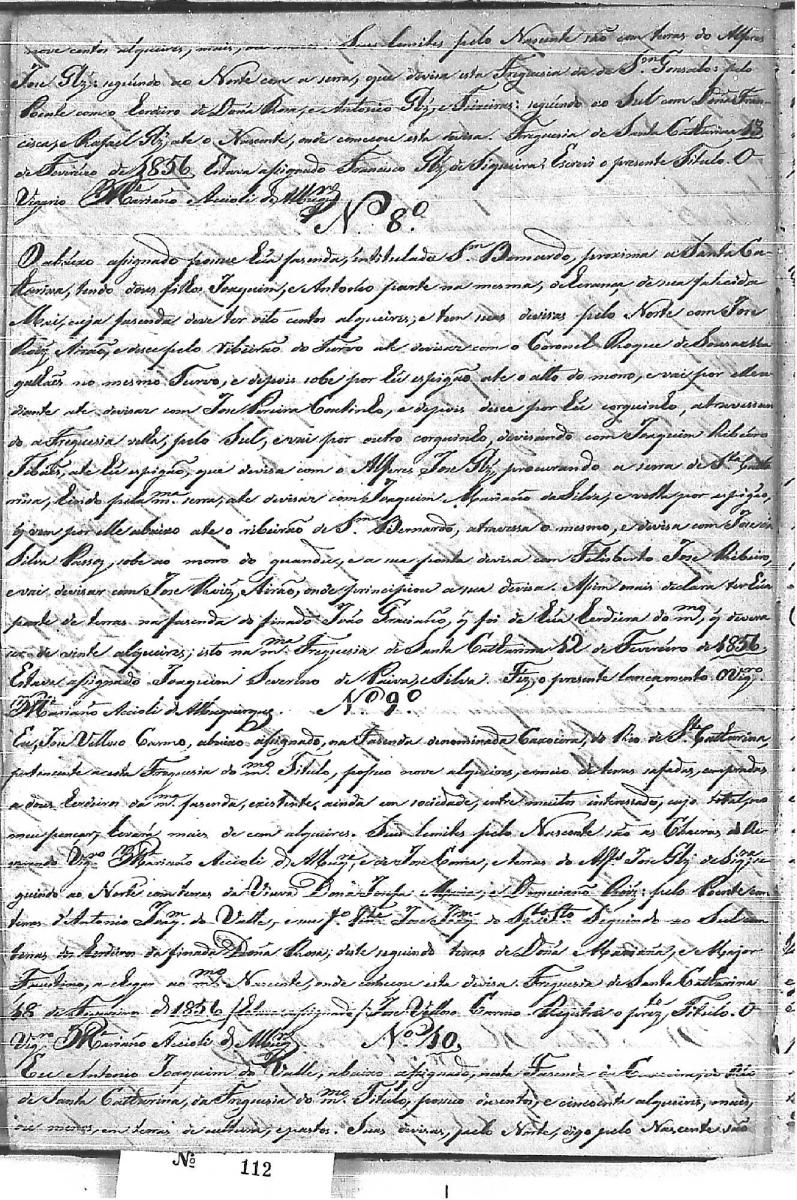 nove centos alqueires, mais, ou menos. Seus lemites pelo Nascente são com terras do Alferes
José Glz; seguindo ao Norte com a serra, que devisa esta Freguesia da de S. Gonsalo: pelo
Poente com o Erdeiro de Dona Rosa, e Antonio Glz, e Teixeira: seguindo ao Sul com Dona Fran-
cisca, e Rafael Glz, até o Nascente, onde comesou esta devisa. Freguesia de Santa Catharina 13
de Fevereiro de 1856. Estava assignado Francisco Glz de Siqueira, Escrevi o presente Titulo. O
Vigario Mariano Accioli de Albuqr
Nº 8º
O abaixo assignado possue hũa fasenda, intitulada Sm Bernardo, proxima a Santa Ca-
tharina, tendo dous filhos Joaquim, e Antonio parte na mesma, de erança de sua falecida
Mai, cuja fasenda deve ter oito centos alqueires; e tem suas devisas pelo Norte com José
Roiz Airão, e desce pelo ribeirão do Turvo até devisar com o Coronel Roque de Sousa Ma-
galhães no mesmo Turvo, e depois sobe por hũ espigão até o alto do morro, e vai por elle a-
diante até devisar com José Pereira Coutinho, e depois desce por hũ corguinho, atravessan-
do a Freguesia velha, pelo Sul, e vai por outro corguinho, devisando com Joaquim Ribeiro
até hũ espigão, que devisa com o Alferes José Glz, procurando a serra de Sta Catha-
rina, hindo pela ma serra, até devisar com Joaquim Mariano da Silva, e volta por espigão,
q vem por elle abaixo até o ribeirão de Sm Bernardo, atravessa o mesmo, e devisa com José da
Silva Passos, sobe ao morro do guandú, e a sua ponta devisa com Felisberto José Ribeiro,
e vai devisar com José Roiz Airão, onde principiou a sua devisa. Assim mais declara ter hũa
parte de terras na fasenda do finado João Graciano, q foi de hũa Erdeira do mo, q devera
de vinte alqueires; isto na ma Freguesia de Santa Catharina 12 de Fevereiro de 1856.
Estava assignado Joaquim Severino de Paiva, e Silva. Fiz o presente lançamento. O Vigro
Mariano Accioli d'Albuquerque.
Nº 9º
Eu, José Velloso Carmo, abaixo assignado, na Fasenda denominada Caxoeira, do Rio de Sta Catharina,
pertencente a esta Freguesia do mmo Titulo, possuo nove alqueires, e meio de terras safadas, compradas
a dous Erdeiros da ma fasenda, existente, ainda em sociedade, entre muitos interessados, cujo total, no
meu pençar, levará mais de cem alqueires. Seus lemites pelo Nascente são as Chacras do Re-
verendo Vigro Mariano Accioli d'Albuqe, e de José Correa, e terras do Alfs José Glz de Siqra; se-
guindo ao Norte com terras da Viuva Dona Josefa Maria, e Domeciano Roiz: pelo Poente com
terras d'Antonio Joaqm do Valle, e seu José Joaqm do Spto Sto. Seguindo ao Sul com
terras do Erdeiro da finada Dona Rosa; deste seguindo terras de Dona Mariana, e Major
Faustino, a chegar ao mmo Nascente, onde comesou esta devisa. Freguesia de Santa Catharina
18 de Fevereiro de 1856. Estava assignado José Velloso Carmo. Registrei o prezte Titulo. O
Vigro Mariano Accioli d'Albuqr
Nº 10.
Eu Antonio Joaquim do Valle, abaixo assignado, nesta Fasenda da Caxoeira, do Rio
de Santa Catharina, da Freguesia do mmo Titulo, possuo dusentos, e cincoenta alqueires, mais,
ou menos, em terras de cultura, e pastos. Suas devisas, pelo Norte, digo pelo Nascente são
Nº 112